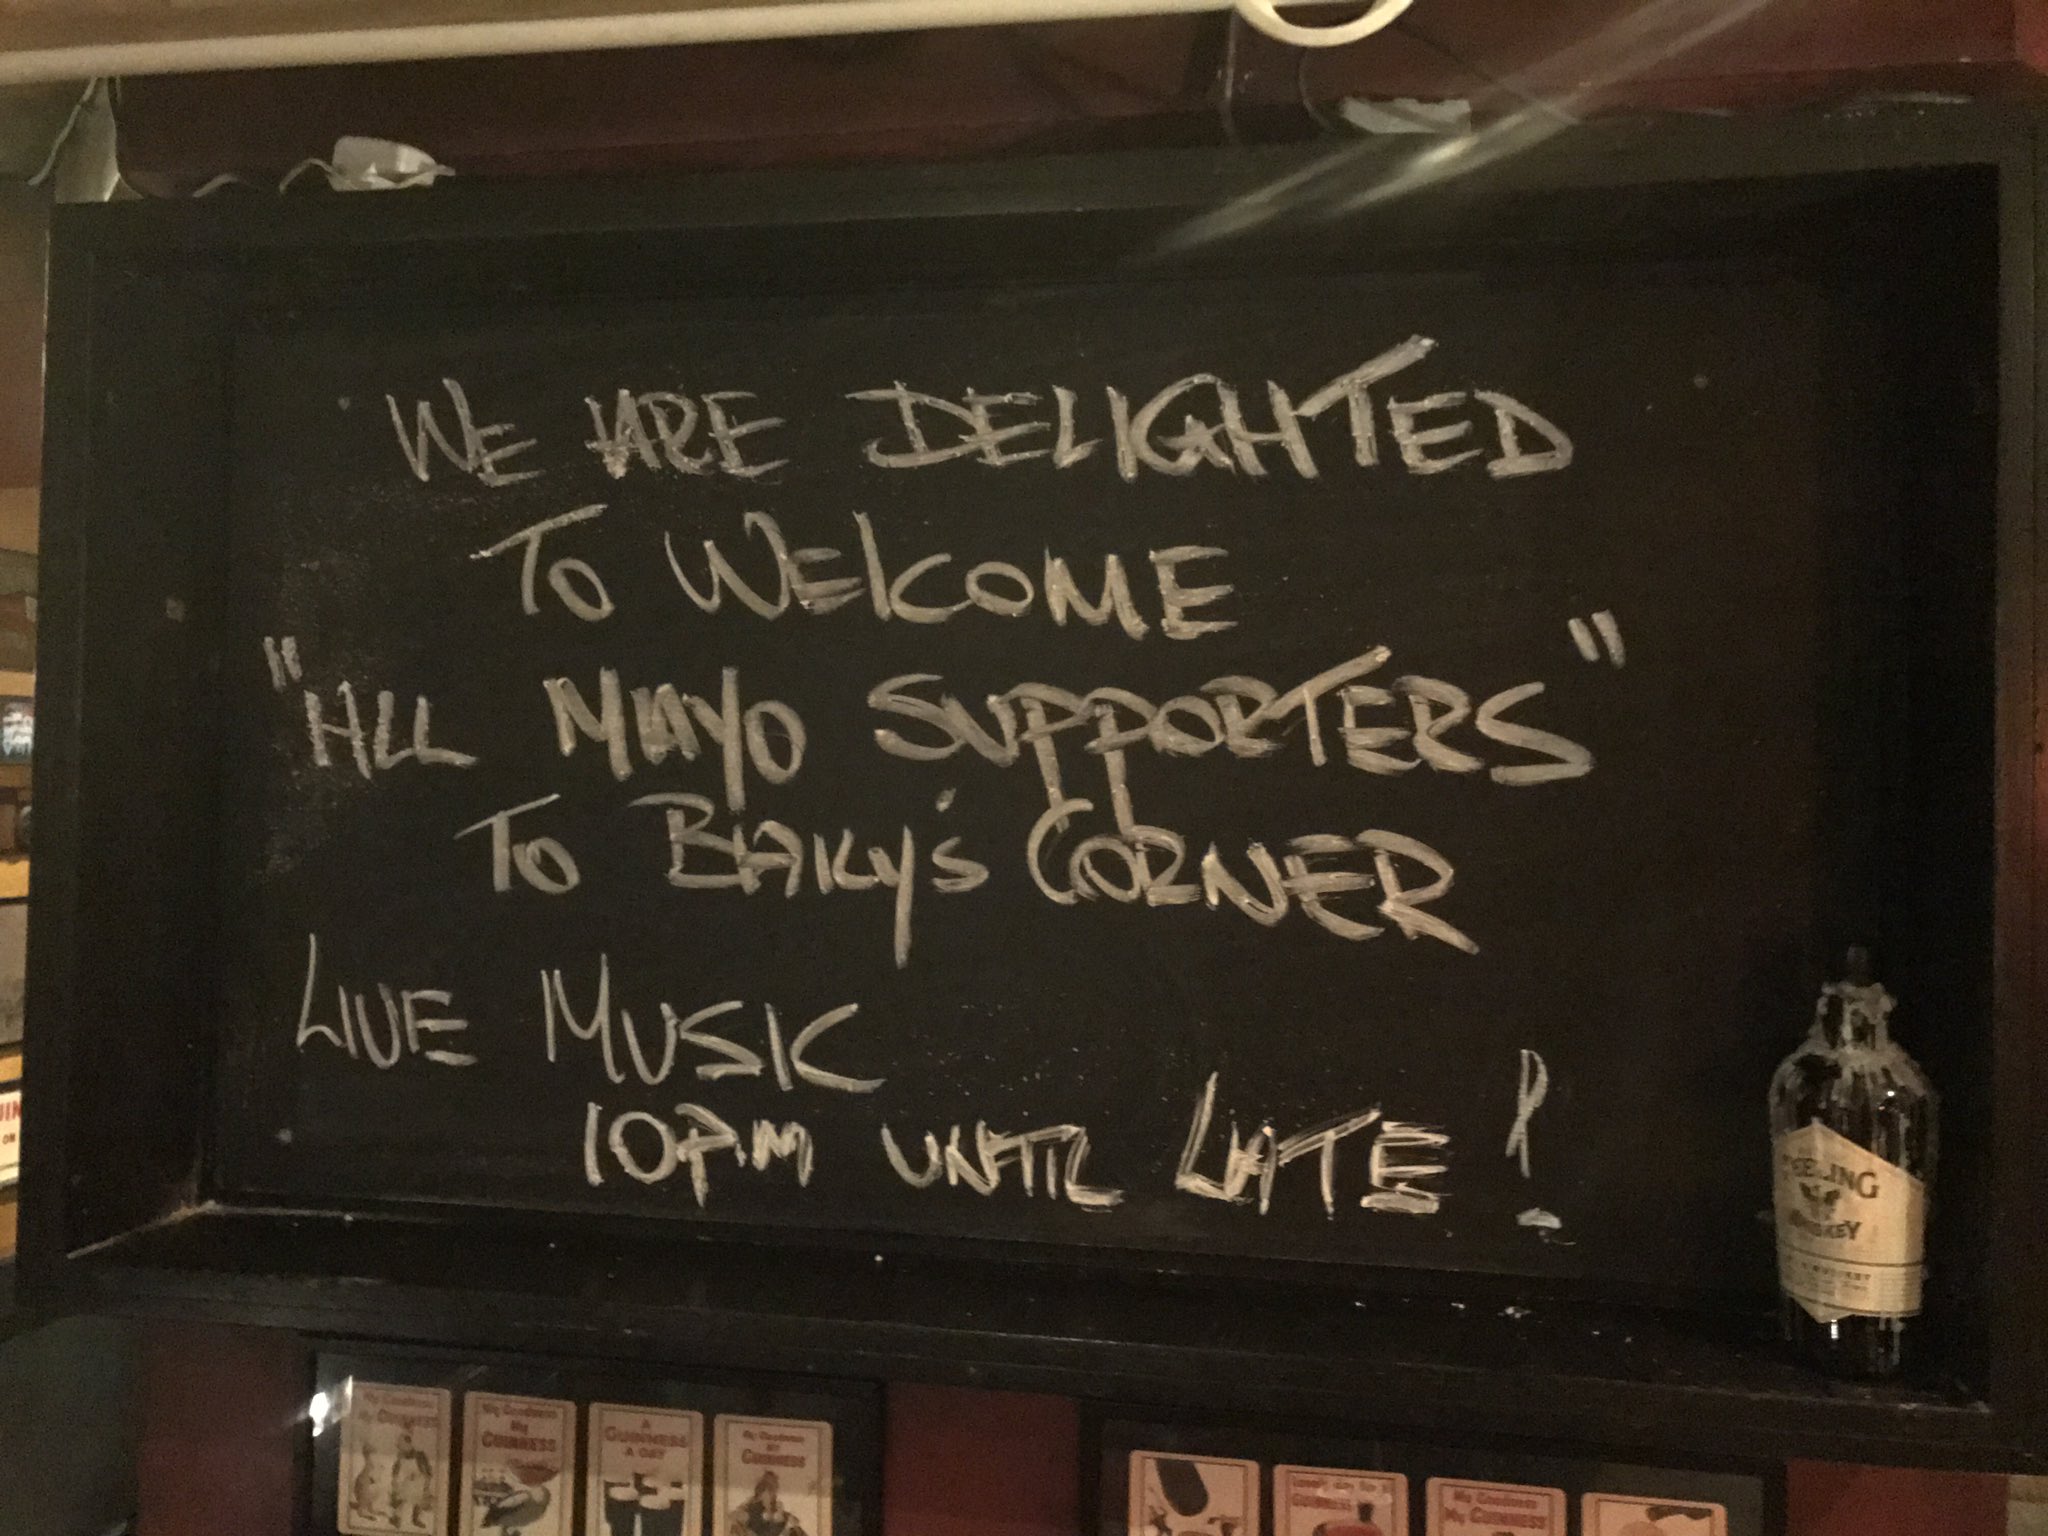 WE ARE DELIGHTED
TO WELCOME
"ALL MAYO SUPPORTERS"
TO BLAKY'S CORNER
LIVE MUSIC
10P.M UNTIL LATE!
TEELING
WHISKEY
My Goodness
My
GUINNESS
A
GUINNESS
A DAY
My Goodness
My
GUINNESS
GUINNESS
My Goodness
My GUINNESS